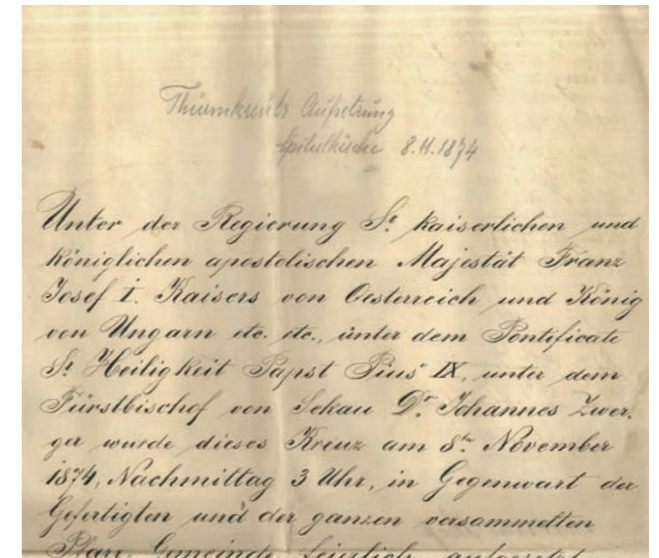 Thurmkreuts Aufsetzung
Spitelkirche 8.11.1874
Unter der Regierung Sr. kaiserlichen und
königlichen apostolischen Majestät Franz
Josef I. Kaisers von Oesterreich und König
von Ungarn etc. etc., unter dem Pontificate
Sr. Heiligkeit Papst Pius IX, unter dem
Fürstbischof von Sekau Dr. Johannes Zwer,
ger wurde dieses Kreuz am 8ten November
1874, Nachmittag 3 Uhr, in Gegenwart der
Gefertigten und der ganzen versammelten
Pfarr-Gemeinde feierlich aufgesetzt